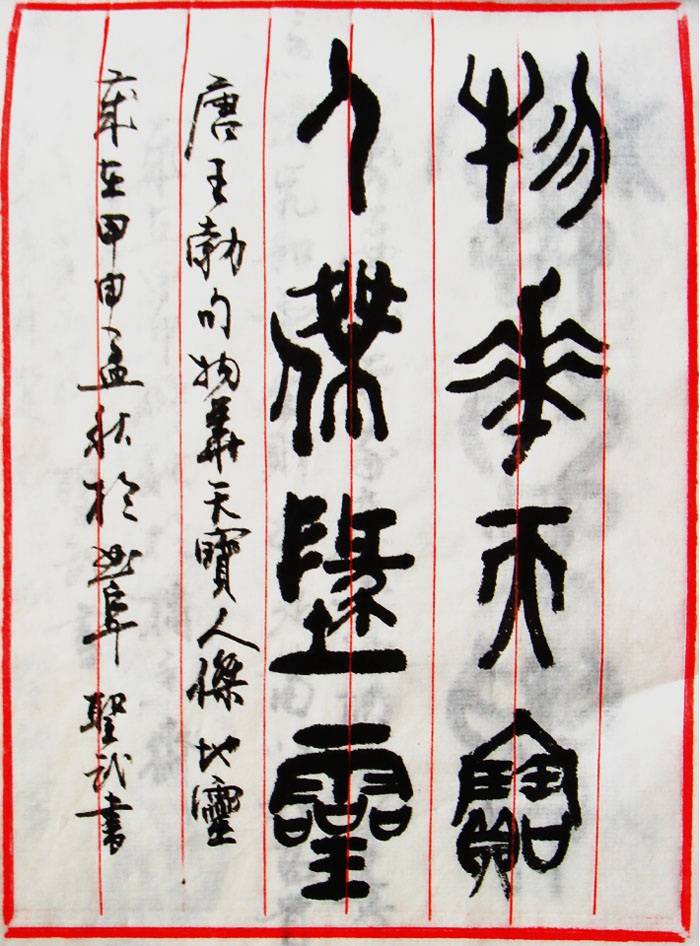 物華天寶
人傑墬靈
唐王勃句物華天寶人傑地靈
歲在甲申孟秋於曲阜聖武書